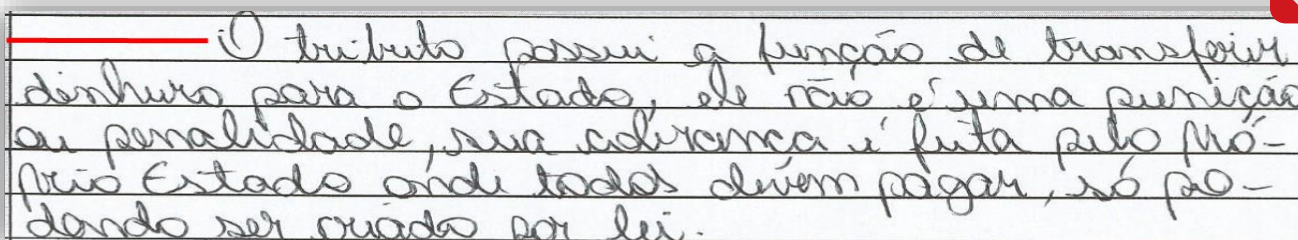 O tributo possui a função de transferir
dinheiro para o Estado, ele não é uma punição
ou penalidade, sua cobrança é feita pelo pró-
prio Estado onde todos devem pagar, só po-
dendo ser criado por lei.